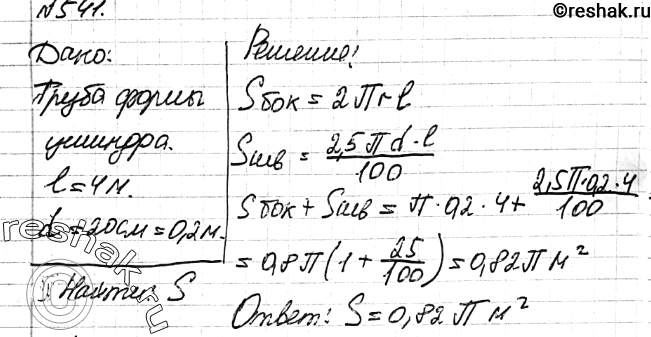 №541.
©reshak.ru
Дано:
Труба формы
цилиндра.
l=4м.
d=20см=0,2м.
Найти: S
Решение:
Sбок = 2πrl
Sшв = 2,5πd·l/100
Sбок + Sшв = π·0,2·4 + 2,5π·0,2·4/100
= 0,8π(1 + 25/100) = 0,82π м²
Ответ: S = 0,82π м²
reshak.ru